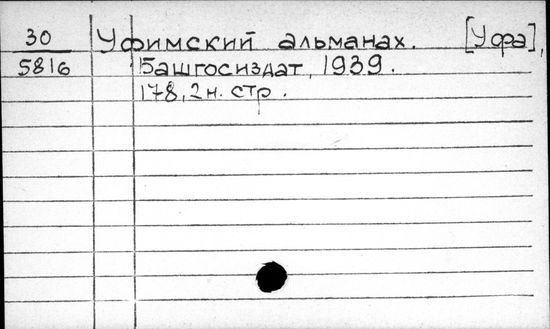 30 Уфимский альманах. [Уфа],
5816 Башгосиздат, 1939.
178, 2 н. стр.